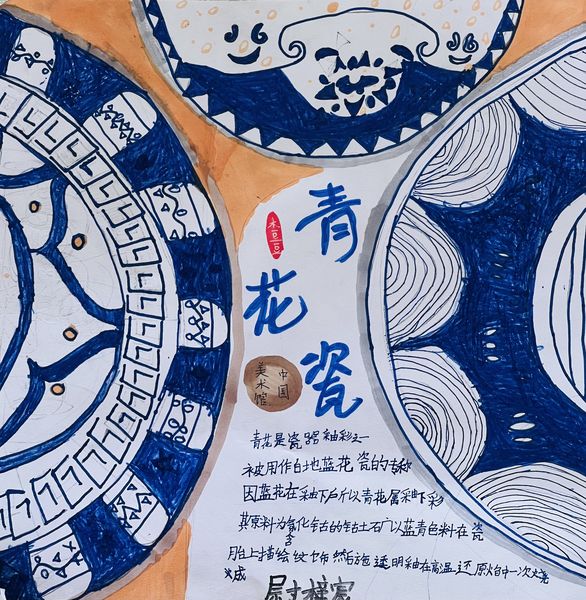 青
花
瓷
木豆豆
中国
美术馆
青花是瓷器釉彩之一
被用作白地蓝花瓷的专称
因蓝花在釉下所以青花属釉下彩
其原料为含氧化钴的钴土石广以蓝青色料在瓷
胎上描绘纹饰然后施透明釉在高温还原焰中一次烧
成